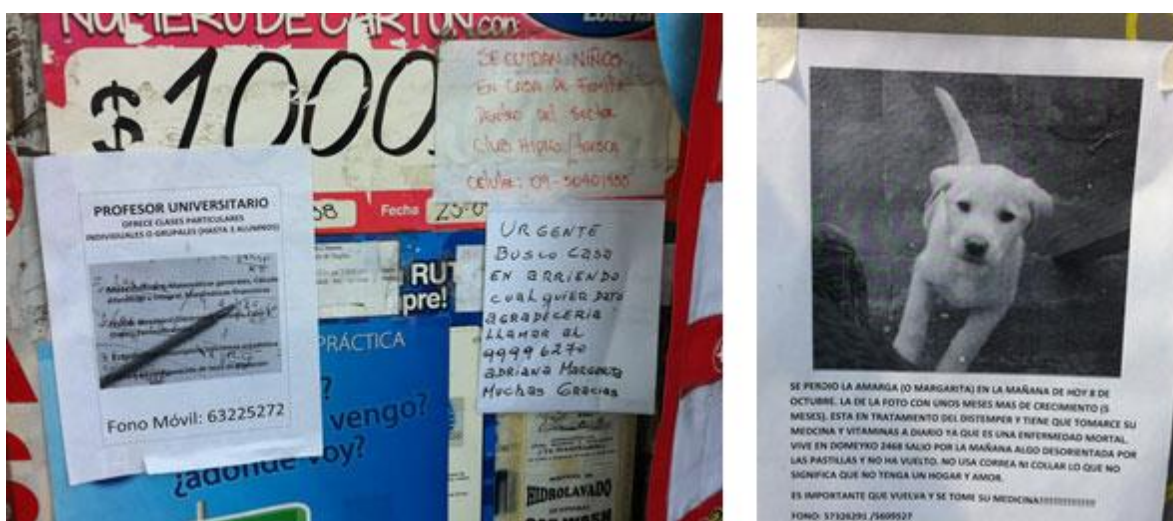 NUMERO DE CARTON con:
Lotería
$1000
SE CUIDAN NIÑOS
EN CASA DE FAMILIA
DENTRO DEL SECTOR
CLUB HIPICO /
CELULAR: 09-50401955
PROFESOR UNIVERSITARIO
OFRECE CLASES PARTICULARES
INDIVIDUALES O GRUPALES (HASTA 3 ALUMNOS)
Fono Móvil: 63225272
58
Fecha
RUT
pre!
PRÁCTICA
?
vengo?
¿adonde voy?
URGENTE
BUSCO CASA
EN ARRIENDO
CUALQUIER DATO
AGRADECERIA
LLAMAR AL
99996270
ADRIANA MARGARITA
MUCHAS GRACIAS
HIDROLAVADO
SE PERDIO LA AMARGA (O MARGARITA) EN LA MAÑANA DE HOY 8 DE
OCTUBRE. LA DE LA FOTO CON UNOS MESES MAS DE CRECIMIENTO (5
MESES). ESTA EN TRATAMIENTO DEL DISTEMPER Y TIENE QUE TOMARCE SU
MEDCINA Y VITAMINAS A DIARIO YA QUE ES UNA ENFERMEDAD MORTAL.
VIVE EN DOMEYKO 2468 SALIO POR LA MAÑANA ALGO DESORIENTADA POR
LAS PASTILLAS Y NO HA VUELTO. NO USA CORREA NI COLLAR LO QUE NO
SIGNIFICA QUE NO TENGA UN HOGAR Y AMOR.
ES IMPORTANTE QUE VUELVA Y SE TOME SU MEDICINA!!!!!!!!!!!!!!
FONO: 57326291 /5609527